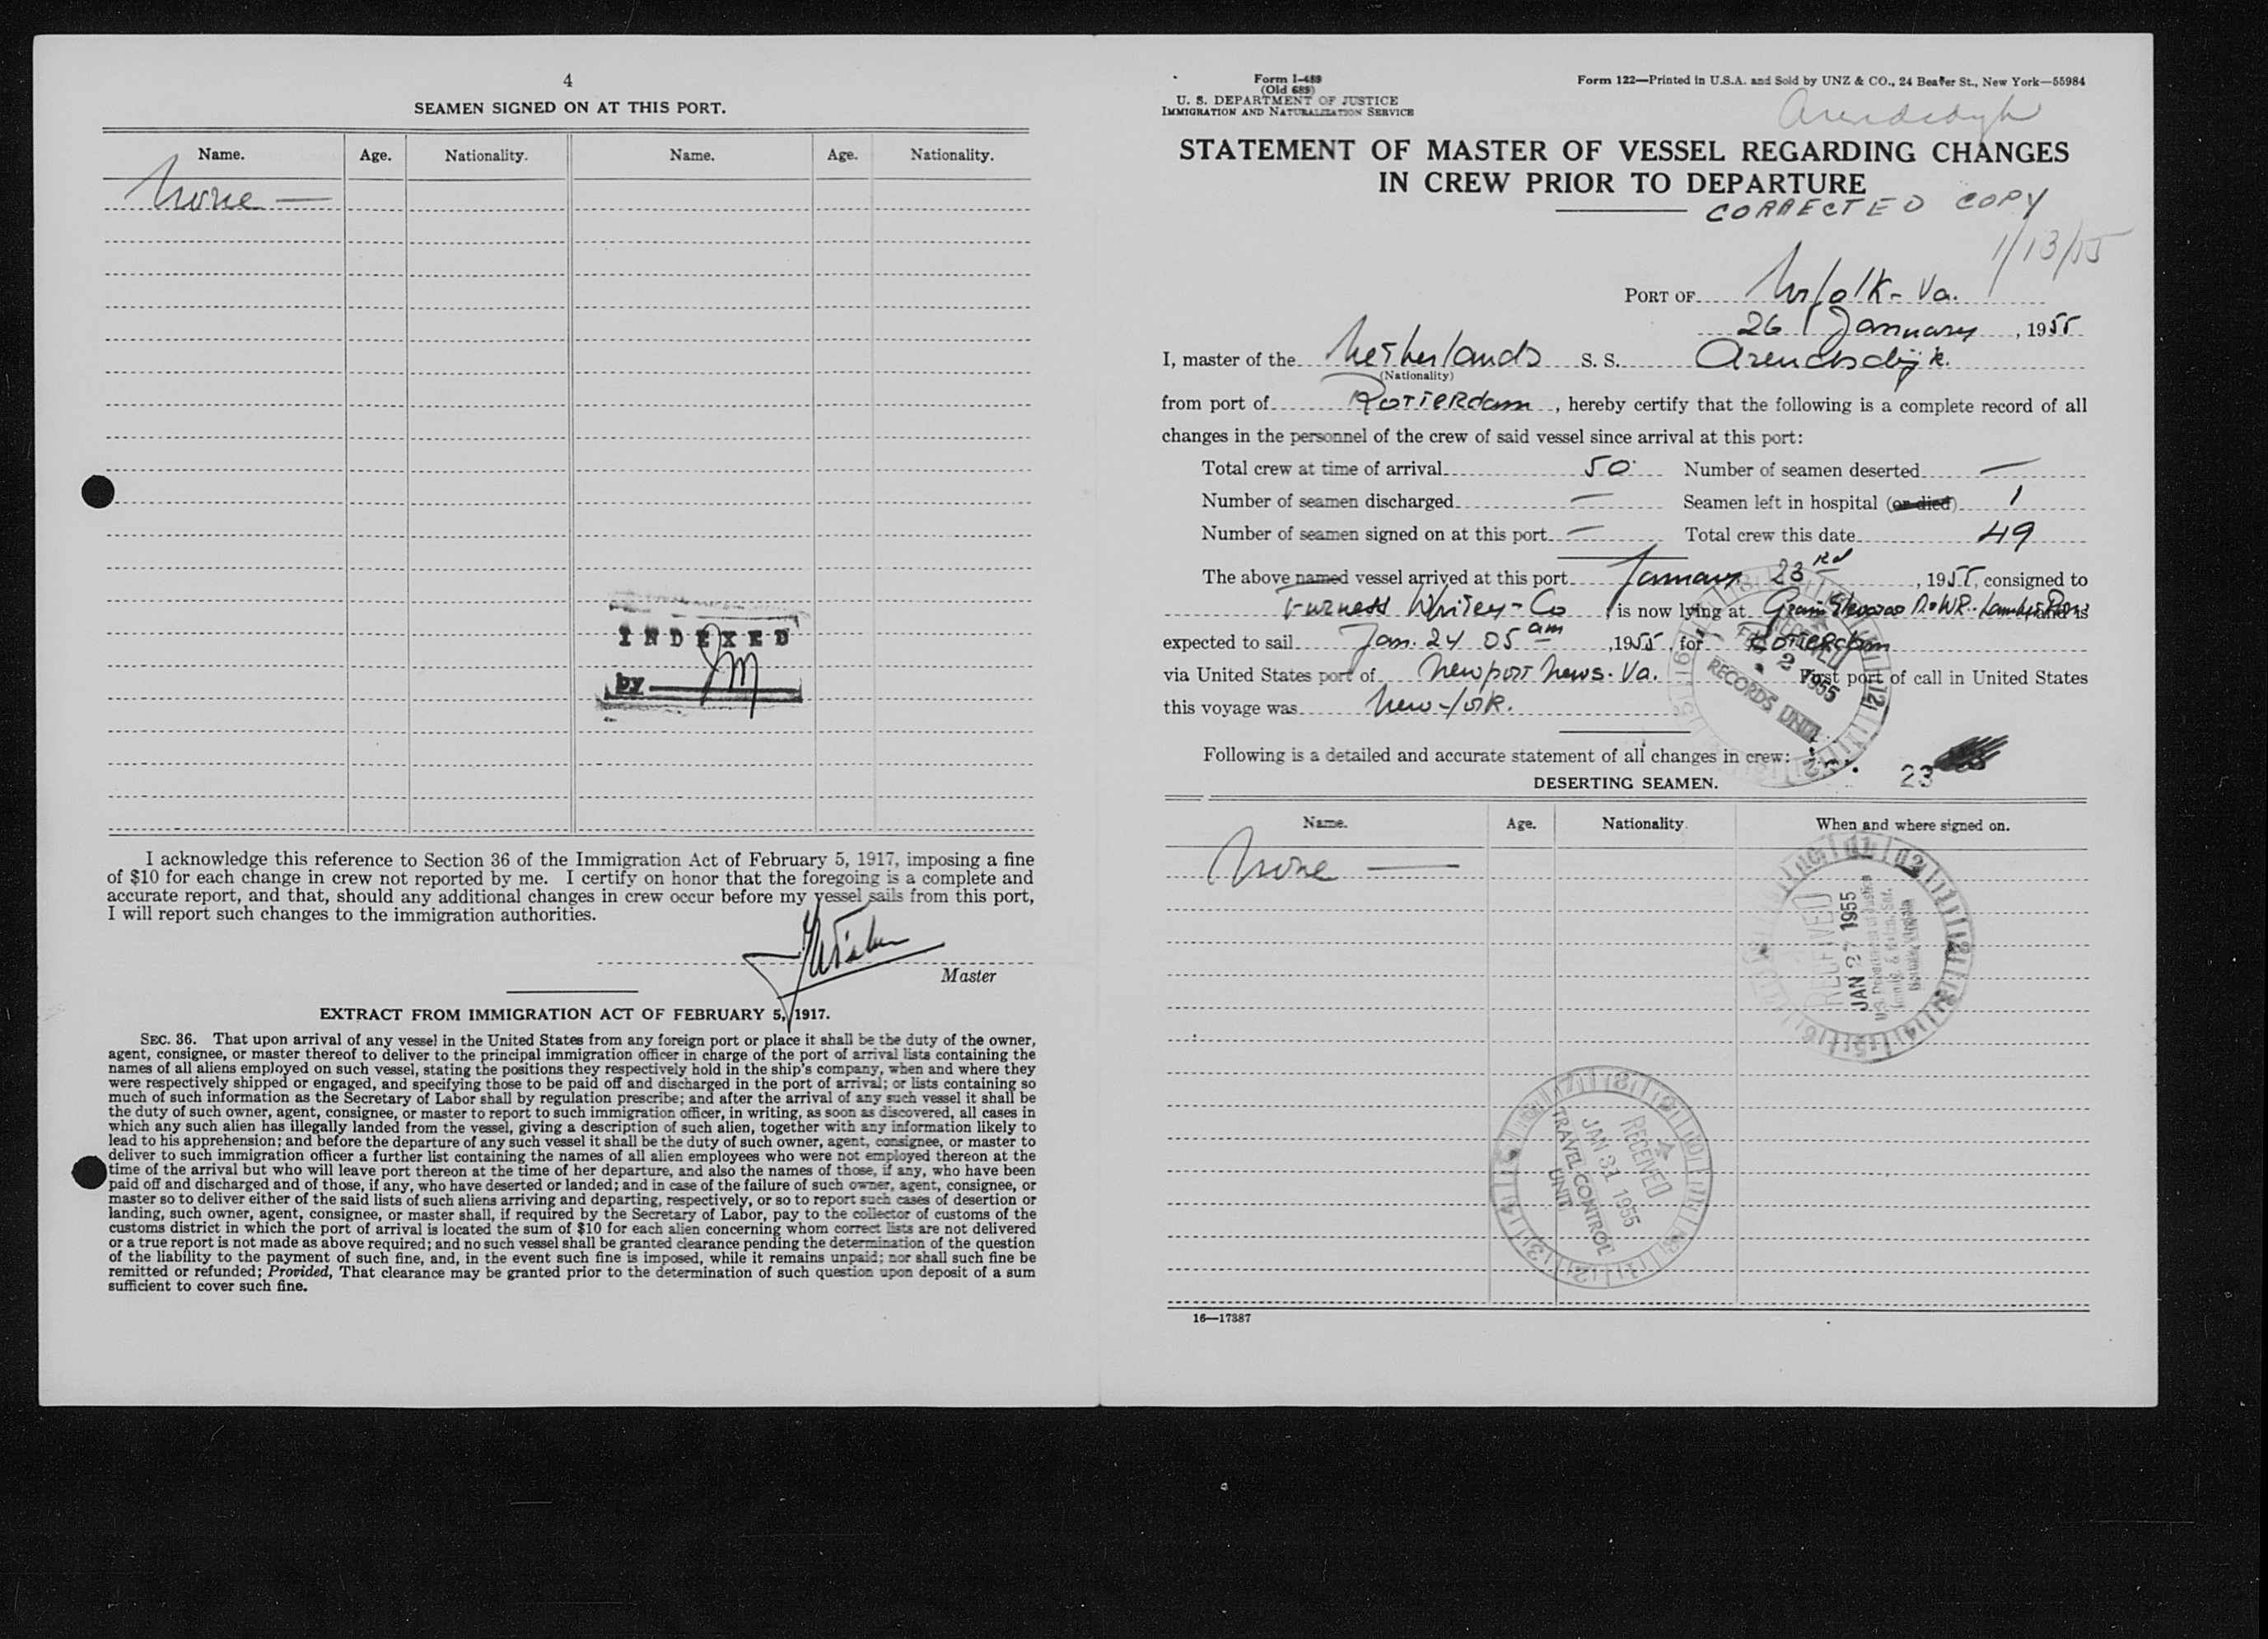 4
SEAMEN SIGNED ON AT THIS PORT.
Name. Age. Nationality. Name. Age. Nationality.
None —
INDEXED
by
I acknowledge this reference to Section 36 of the Immigration Act of February 5, 1917, imposing a fine
of $10 for each change in crew not reported by me. I certify on honor that the foregoing is a complete and
accurate report, and that, should any additional changes in crew occur before my vessel sails from this port,
I will report such changes to the immigration authorities.
Master
EXTRACT FROM IMMIGRATION ACT OF FEBRUARY 5, 1917.
SEC. 36. That upon arrival of any vessel in the United States from any foreign port or place it shall be the duty of the owner,
agent, consignee, or master thereof to deliver to the principal immigration officer in charge of the port of arrival lists containing the
names of all aliens employed on such vessel, stating the positions they respectively hold in the ship's company, when and where they
were respectively shipped or engaged, and specifying those to be paid off and discharged in the port of arrival; or lists containing so
much of such information as the Secretary of Labor shall by regulation prescribe; and after the arrival of any such vessel it shall be
the duty of such owner, agent, consignee, or master to report to such immigration officer, in writing, as soon as discovered, all cases in
which any such alien has illegally landed from the vessel, giving a description of such alien, together with any information likely to
lead to his apprehension; and before the departure of any such vessel it shall be the duty of such owner, agent, consignee, or master to
deliver to such immigration officer a further list containing the names of all alien employees who were not employed thereon at the
time of the arrival but who will leave port thereon at the time of her departure, and also the names of those, if any, who have been
paid off and discharged and of those, if any, who have deserted or landed; and in case of the failure of such owner, agent, consignee, or
master so to deliver either of the said lists of such aliens arriving and departing, respectively, or so to report such cases of desertion or
landing, such owner, agent, consignee, or master shall, if required by the Secretary of Labor, pay to the collector of customs of the
customs district in which the port of arrival is located the sum of $10 for each alien concerning whom correct lists are not delivered
or a true report is not made as above required; and no such vessel shall be granted clearance pending the determination of the question
of the liability to the payment of such fine, and, in the event such fine is imposed, while it remains unpaid; nor shall such fine be
remitted or refunded; Provided, That clearance may be granted prior to the determination of such question upon deposit of a sum
sufficient to cover such fine.
Form I-489
(Old 689)
U. S. DEPARTMENT OF JUSTICE
IMMIGRATION AND NATURALIZATION SERVICE
Form 122—Printed in U.S.A. and Sold by UNZ & CO., 24 Beaver St., New York—55984
Arendsdyk
STATEMENT OF MASTER OF VESSEL REGARDING CHANGES
IN CREW PRIOR TO DEPARTURE
CORRECTED COPY
1/13/55
PORT OF Norfolk - Va.
26 January, 1955
I, master of the Netherlands S. S. Arendsdijk.
(Nationality)
from port of Rotterdam, hereby certify that the following is a complete record of all
changes in the personnel of the crew of said vessel since arrival at this port:
Total crew at time of arrival 50 Number of seamen deserted —
Number of seamen discharged — Seamen left in hospital (or died) 1
Number of seamen signed on at this port — Total crew this date 49
The above named vessel arrived at this port January 23rd, 1955, consigned to
Furness Whitey - Co, is now lying at Grain and is
expected to sail Jan. 24 05 am, 1955, for Rotterdam
via United States port of Newport News. Va. First port of call in United States
this voyage was New-York.
RECEIVED
FEB 2 1955
RECORDS UNIT
Following is a detailed and accurate statement of all changes in crew:
23
DESERTING SEAMEN.
Name. Age. Nationality. When and where signed on.
None —
RECEIVED
JAN 27 1955
U.S. Department of Justice
Immig. & Natzn. Ser.
Norfolk, Virginia
RECEIVED
JAN 31 1955
TRAVEL CONTROL
UNIT
16—17387